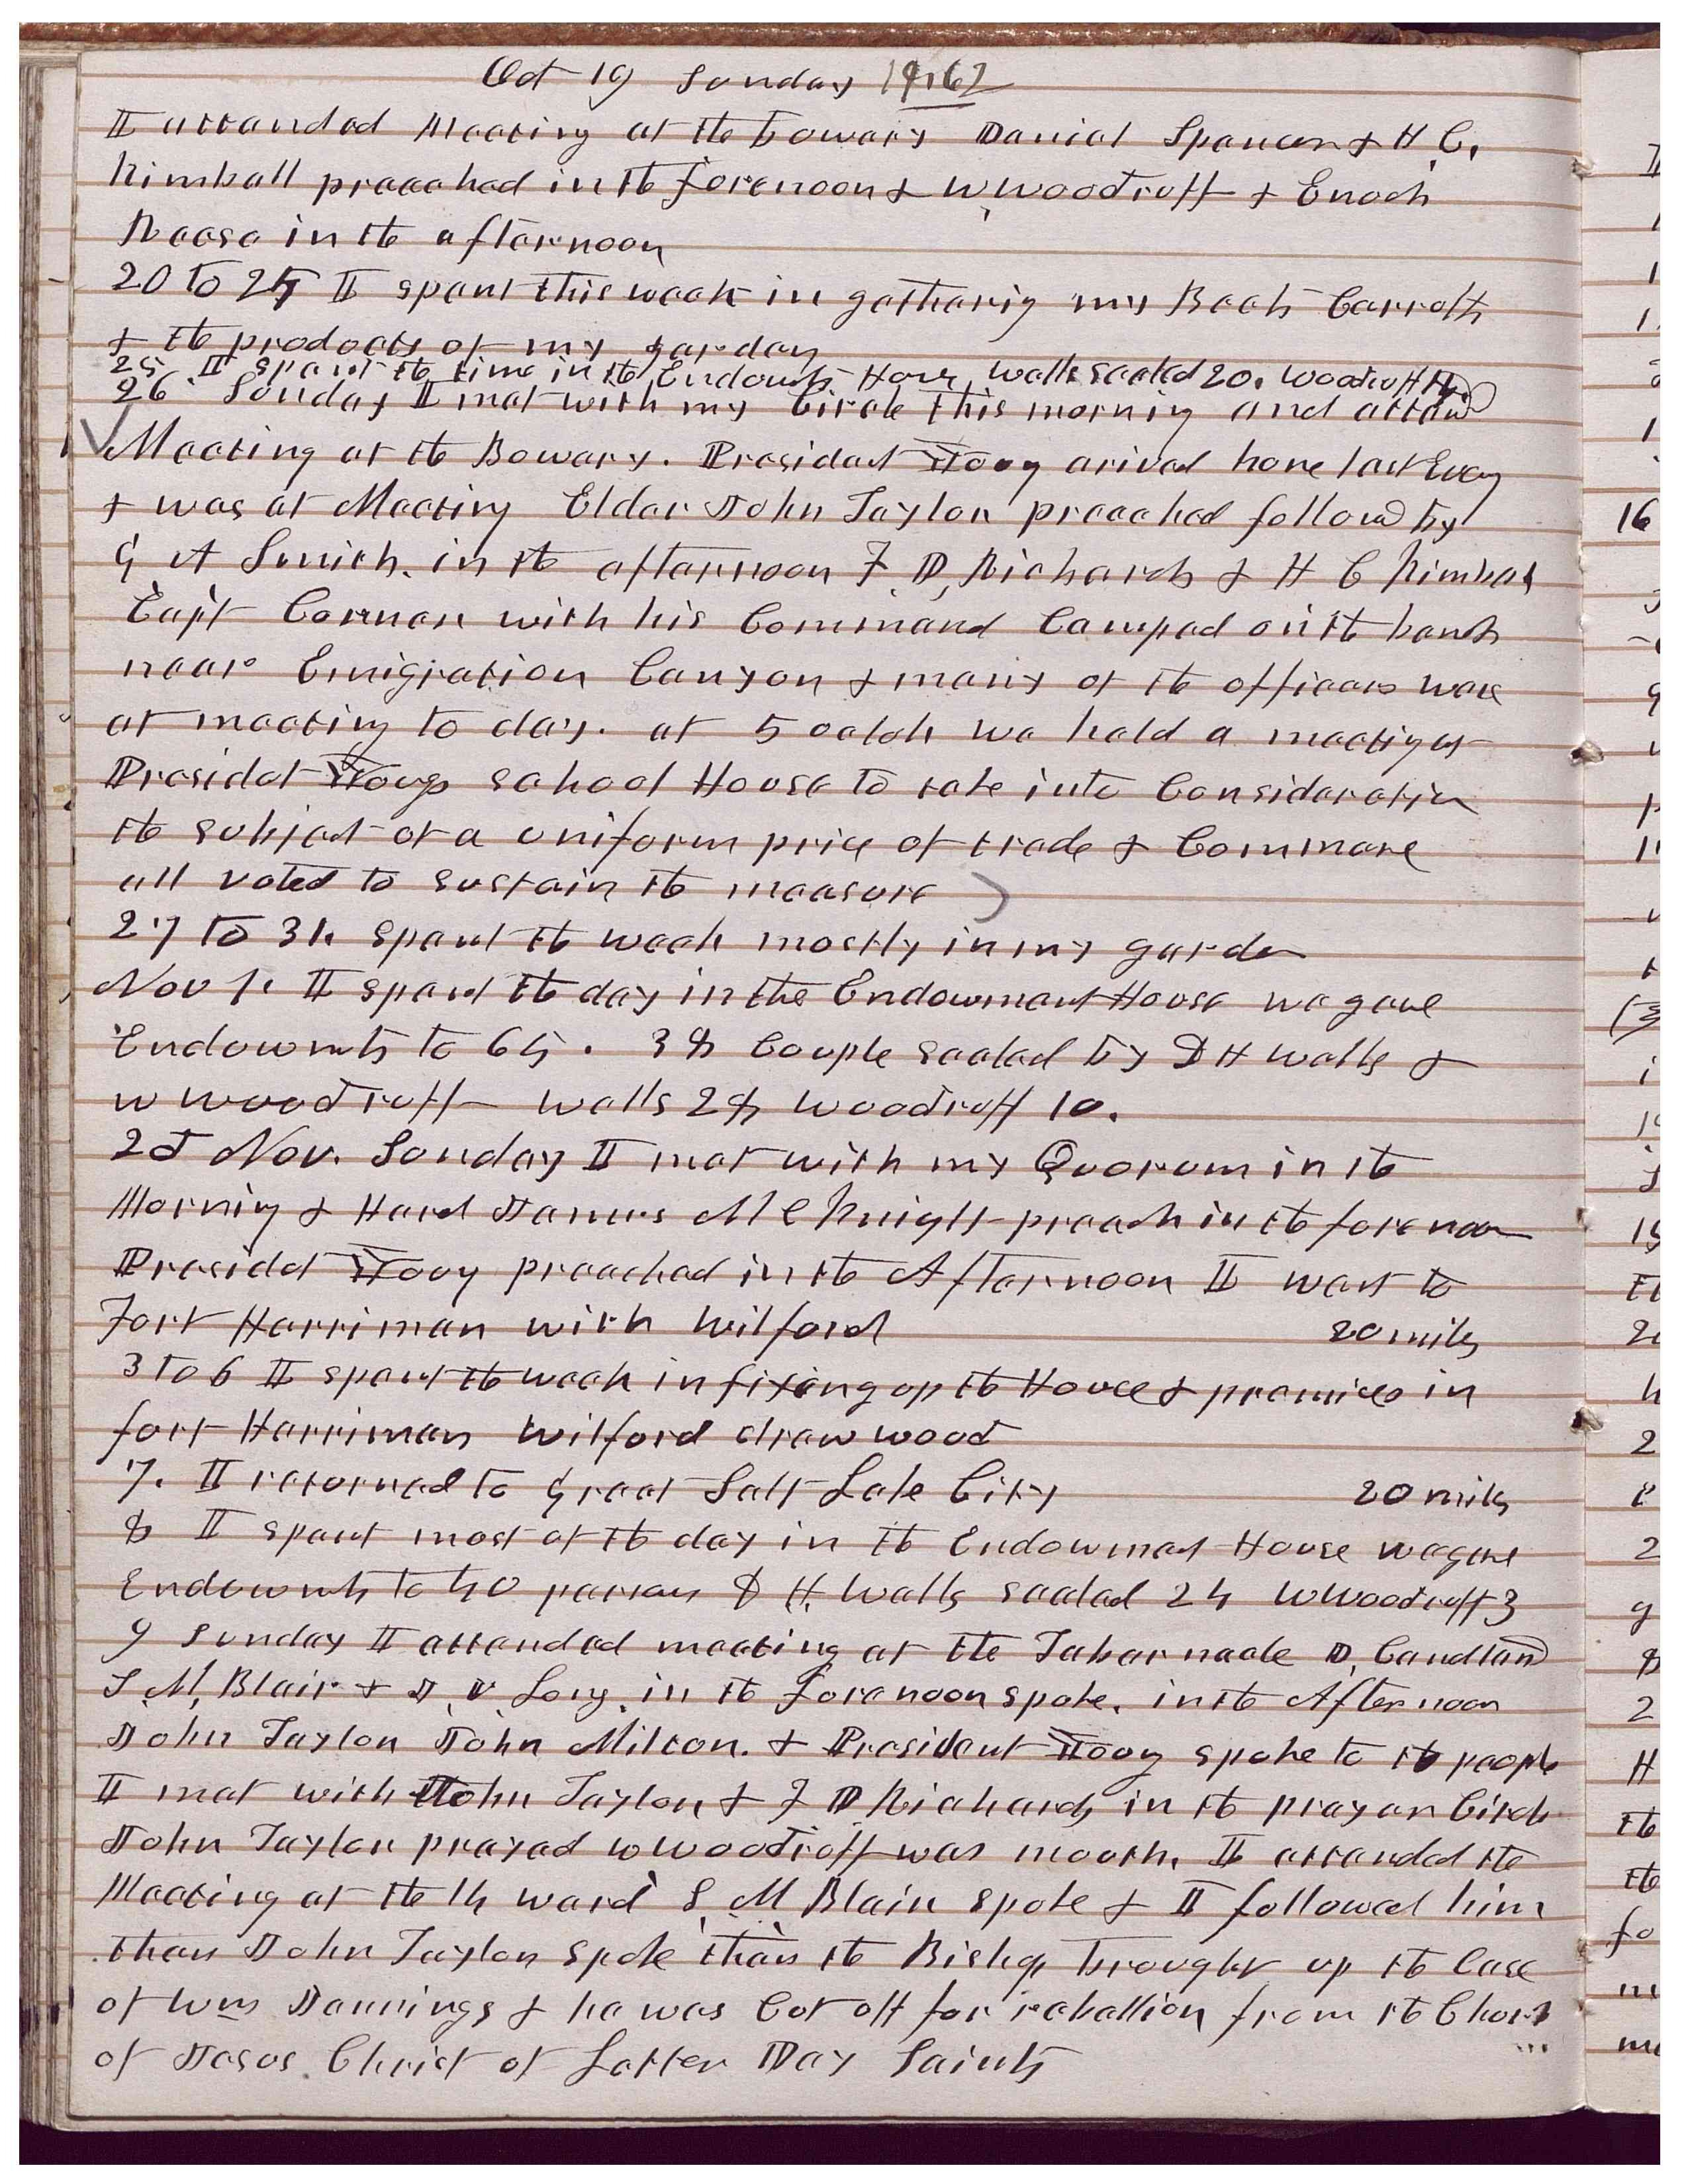 Oct 19 Sunday 1862
I attended Meeting at the bowery Daniel Spencer & H. C.
Kimball preached in the forenoon & W. Woodruff & Enoch
Reese in the afternoon
20 to 24 I spent this week in gatherig my Beets Carrotts
& the products of my garden
25 I spent the time in the Endowmts House Wells sealed 20. Woodruff
26 Sunday I met with my Circle this mornig and attend
Meeting at the Bowery. President Young arived home last Eveg
& was at Meeting Elder John Taylor preached followed by
G A Smith. in the afternoon F. D. Richards & H C Kimball
Capt Connor with his Command Camped on the bench
near Emigration Canyon & many of the officers were
at meeting to day. at 5 oclok we held a meetig at
Presidet Youngs school House to take into Consideration
the subject of a uniform price of trade & Commerce
all voted to sustain the measure
27 to 31. spent the week mostly in my garden
Nov 1. I spent the day in the Endowment House we gave
Endowmts to 65. 38 Couple sealed by D H Wells &
W Woodruff Wells 28 Woodruff 10.
2d Nov. Sunday I met with my Quorum in the
Mornig & Herd James McKnight preach in the forenoon
Presidet Young preached in the Afternoon I went to
Fort Harriman with Wilford 20 miles
3 to 6 I spent the week in fixing up the House & premises in
fort Harriman Wilford draw wood
7. I returned to Great Salt Lake City 20 miles
8 I spent most of the day in the Endowment House we gave
Endowmts to 40 persons D H. Wells sealed 24 W Woodruff 3
9 Sunday I attended meeting at the Tabernacle D. Candland
S. M. Blair & J. V. Long. in the forenoon spoke. in the Afternoon
John Taylor John Milton. & President Young spoke to the people
I met with John Taylor & F D Richards in the prayer Circle
John Taylor prayed W Woodruff was mouth. I attended the
Meeting at the 14 ward S. M Blair spoke & I followed him
then John Taylor spoke then the Bishop brought up the Case
of Wm Jennings & he was Cut off for rebellion from the Church
of Jesus Christ of Latter Day Saints